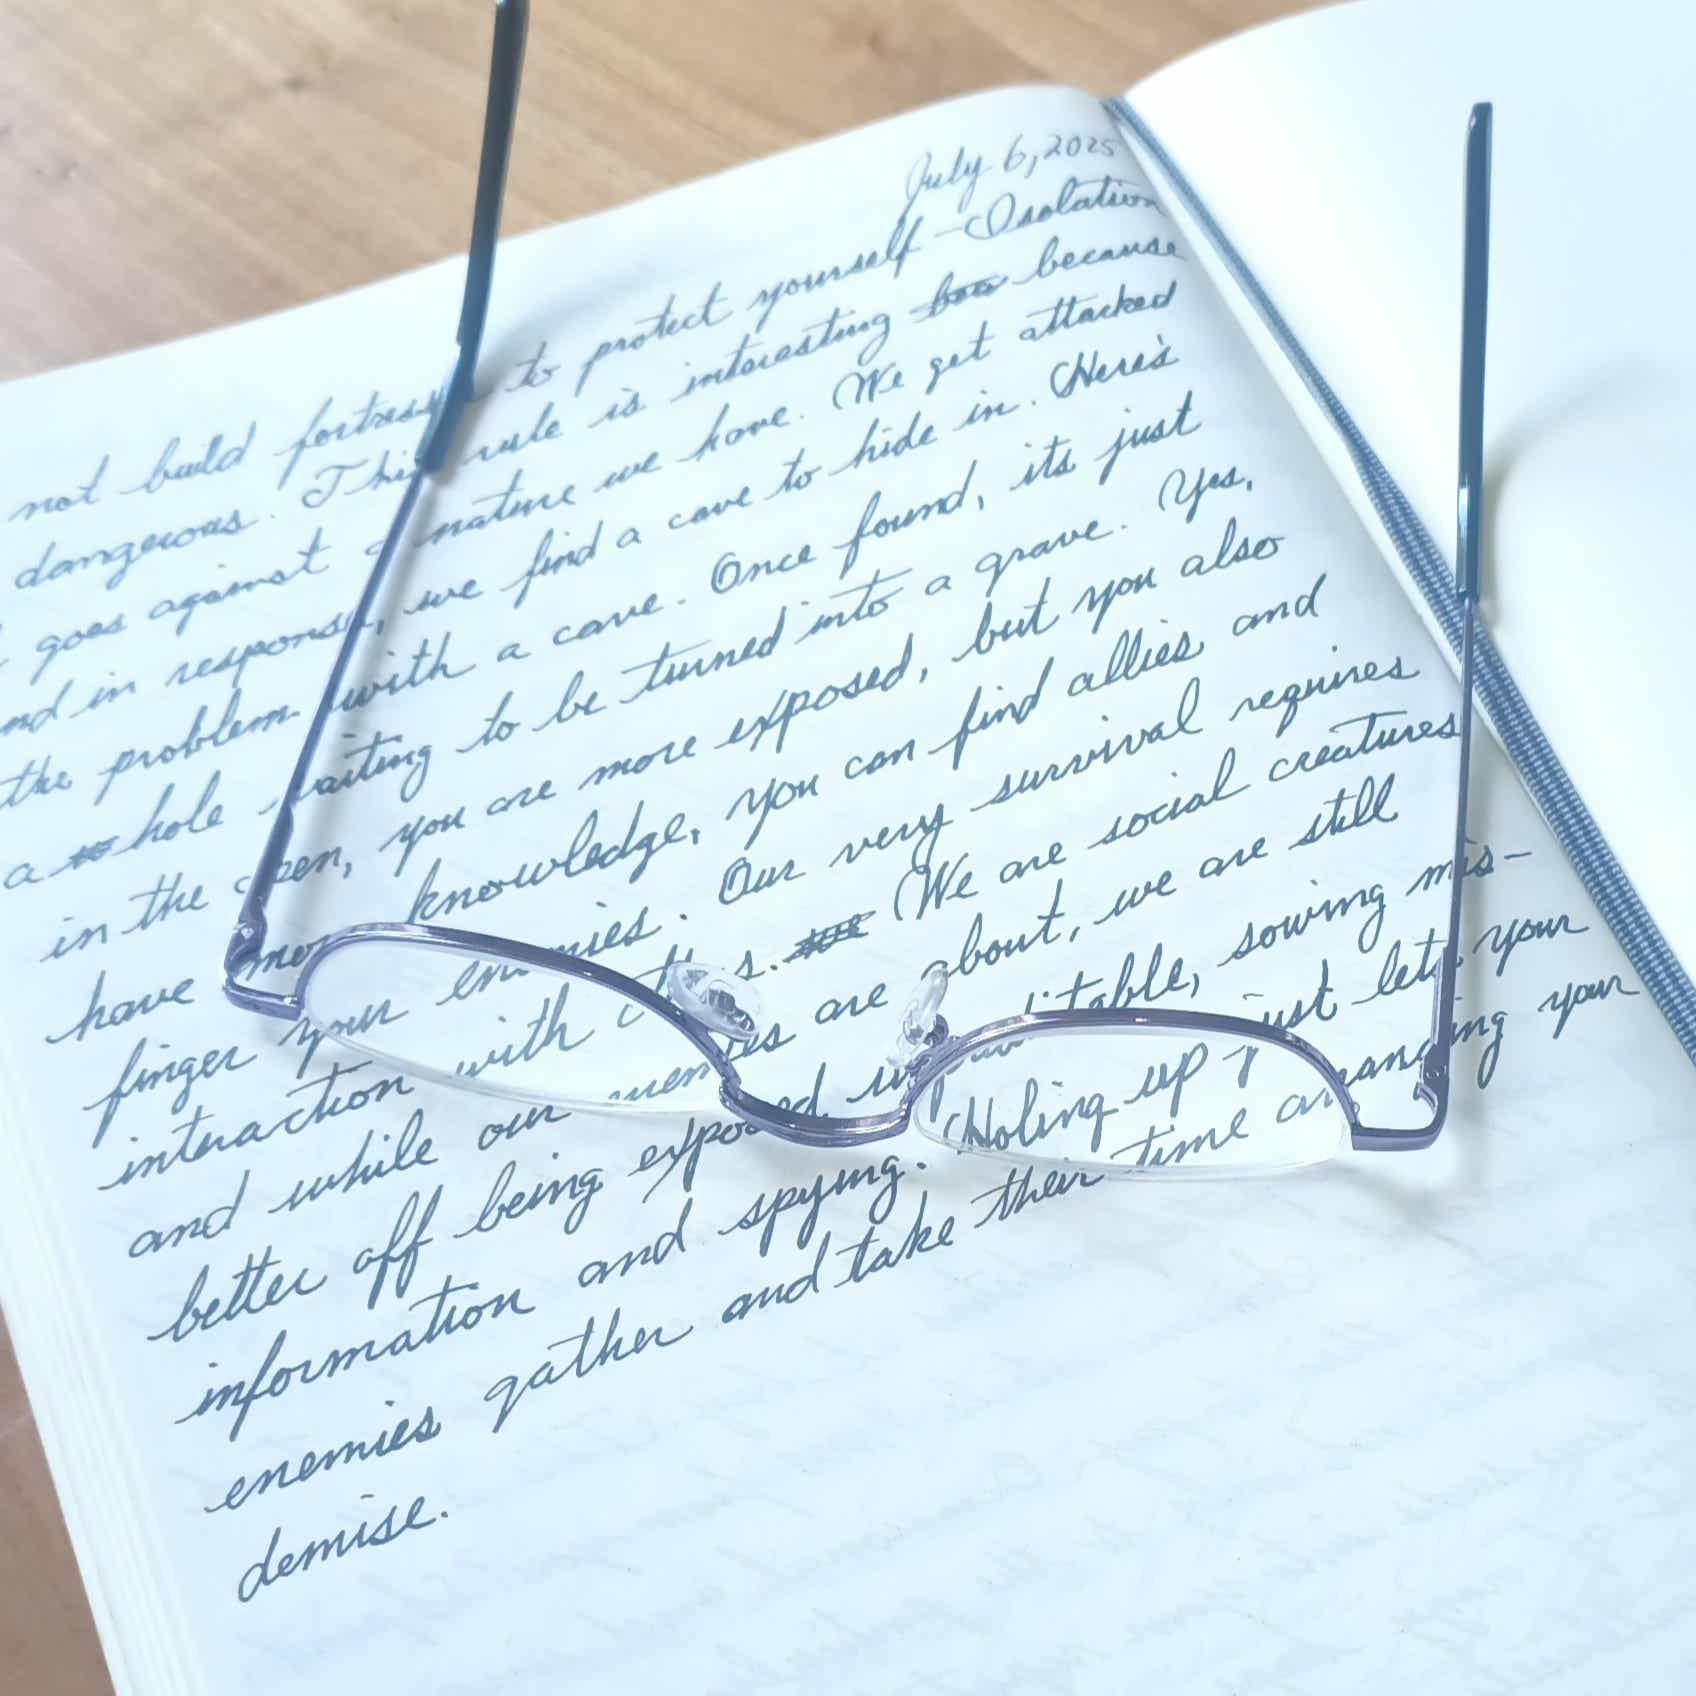 July 6, 2025
not build fortress to protect yourself - Isolation
dangerous. This rule is interesting because
goes against nature we have. We get attacked
nd in response, we find a cave to hide in. Here's
the problem with a cave. Once found, its just
a hole waiting to be turned into a grave. Yes,
in the open, you are more exposed, but you also
have more knowledge, you can find allies and
finger your enemies. Our very survival requires
interaction with others. We are social creatures
and while our enemies are about, we are still
better off being exposed, sowing mis-
information and spying. Holing up just lets your
enemies gather and take their time arranging your
demise.